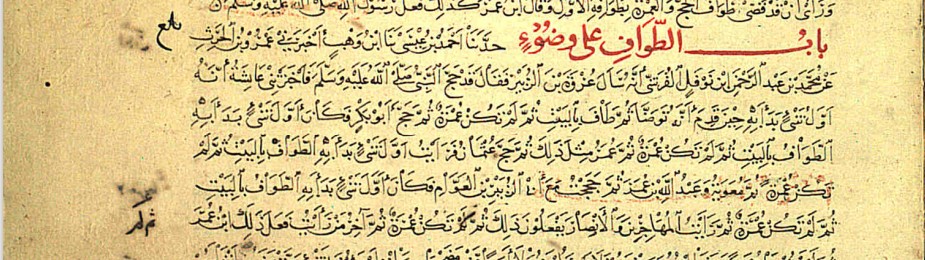 ورأى أن قد قضى طواف الحج والعمرة بطوافه الأول وقال ابن عمر كذلك فعل رسول الله صلى الله عليه وسلم
باب الطواف على وضوء حدثنا احمد بن عيسى نا ابن وهب أخبرني عمرو بن الحرث
عن محمد بن عبد الرحمن ابن نوفل القرشي أنه سأل عروة بن الزبير فقال قد حج النبي صلى الله عليه وسلم فأخبرتني عائشة أنه
أول شيء بدأ به حين قدم أنه توضأ ثم طاف بالبيت ثم لم تكن عمرة ثم حج أبو بكر فكان أول شيء بدأ به
الطواف بالبيت ثم لم تكن عمرة ثم عمر مثل ذلك ثم حج عثمان فرأيت أول شيء بدأ به الطواف بالبيت ثم لم
تكن عمرة ثم معوية وعبد الله بن عمر ثم حججت مع أبي الزبير بن العوام فكان أول شيء بدأ به الطواف بالبيت
ثم لم تكن عمرة ثم رأيت المهاجرين والأنصار يفعلون ذلك ثم لم تكن عمرة ثم آخر من رأيت فعل ذلك ابن عمر
ثم لم